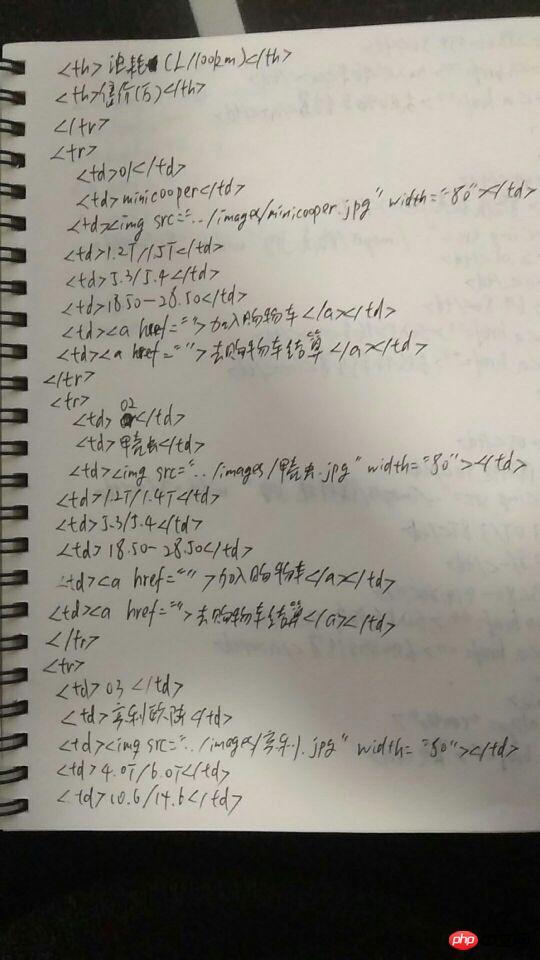 <th>油耗(L/100km)</th>
<th>售价(万)</th>
</tr>
<tr>
<td>01</td>
<td>minicooper</td>
<td><img src="../images/minicooper.jpg" width="80"></td>
<td>1.2T/1.5T</td>
<td>5.3/5.4</td>
<td>18.50-28.50</td>
<td><a href="">加入购物车</a></td>
<td><a href="">去购物车结算</a></td>
</tr>
<tr>
<td>02</td>
<td>甲壳虫</td>
<td><img src="../images/甲壳虫.jpg" width="80"></td>
<td>1.2T/1.4T</td>
<td>5.3/5.4</td>
<td>18.50-28.50</td>
<td><a href="">加入购物车</a></td>
<td><a href="">去购物车结算</a></td>
</tr>
<tr>
<td>03</td>
<td>宾利欧陆</td>
<td><img src="../images/宾利.jpg" width="80"></td>
<td>4.0T/6.0T</td>
<td>10.6/14.6</td>
php